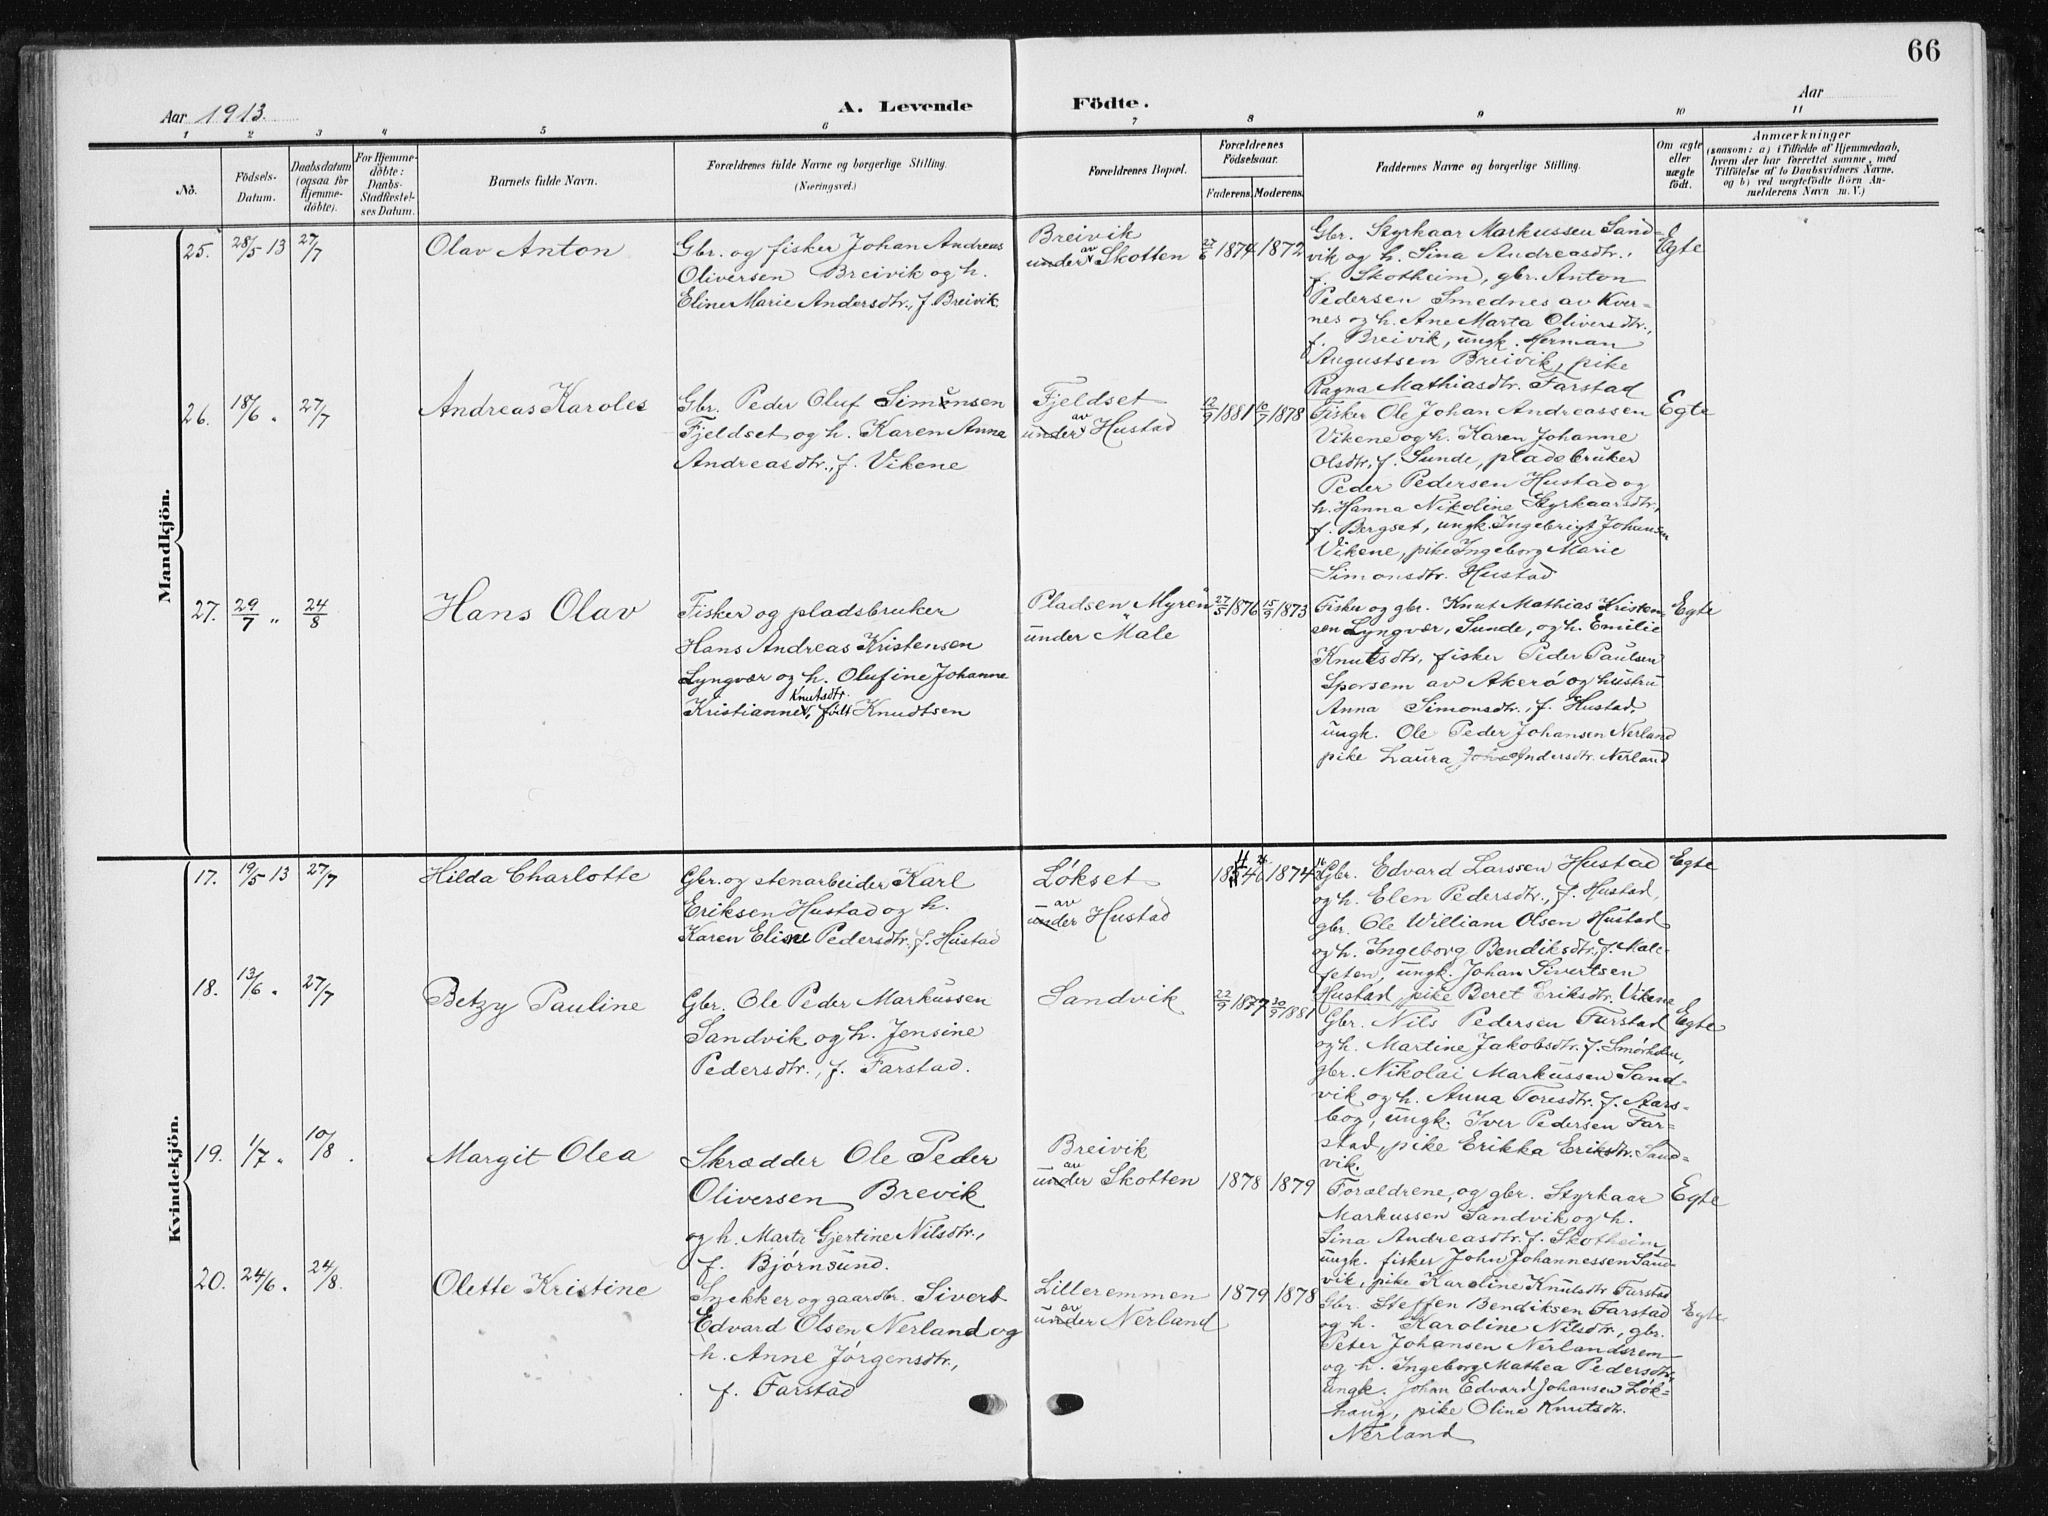 66
Aar 1913.
A. Levende Födte.
Aar
1 2 3 4 5 6 7 8 9 10 11
No.
Födsels-
Datum.
Daabsdatum
(ogsaa for
Hjemme-
döbte).
For Hjemme-
döbte:
Daabs-
Stadfæstel-
ses Datum.
Barnets fulde Navn.
Forældrenes fulde Navne og borgerlige Stilling.
(Næringsvei.)
Forældrenes Bopæl.
Forældrenes
Födselsaar.
Faderens. Moderens.
Faddernes Navne og borgerlige Stilling.
Om ægte
eller
uægte
födt.
Anmærkninger
(saasom: a) i Tilfælde af Hjemmedaab,
hvem der har forrettet samme, med
Tilföielse af to Daabsvidners Navne,
og b) ved uægtefödte Börn An-
melderens Navn m. V.)
Mandkjön.
25. 28/5 13 27/7 Olav Anton
Gbr. og fisker Johan Andreas
Oliversen Breivik og h.
Eline Marie Andersdtr., f. Breivik.
Breivik
under av Skotten
27/6 1874 1872
Gbr. Styrkaar Markussen Sand-
vik og h. Sina Andreasdtr.,
f. Skotheim, gbr. Anton
Pedersen Smednes av Kver-
nes og h. Ane Marta Oliversdtr.,
f. Breivik, ungk. Herman
Augustsen Breivik, pike
Ragna Mathiasdtr. Farstad
Egte
26. 18/6 " 27/7 Andreas Karoles
Gbr. Peder Oluf Simonsen
Fjeldset og h. Karen Anna
Andreasdtr., f. Vikene
Fjeldset
under av Hustad
12/9 1881 10/7 1878
Fisker Ole Johan Andreassen
Vikene og h. Karen Johanne
Olsdtr., f. Sunde, pladsbruker
Peder Pedersen Hustad og
h. Hanna Nikoline Styrkaarsdtr.,
f. Bergset, ungk. Ingebrigt Johansen
Vikene, pike Ingeborg Marie
Simonsdtr. Hustad
Egte
27. 29/7 " 24/8 Hans Olav
Fisker og pladsbruker
Hans Andreas Kristensen
Lyngvær og h. Olufine Johanne
Kristianne Knutsdtr., født Knudtsen
Pladsen Myren
under Male
27/5 1876 15/9 1873
Fisker og gbr. Knut Mathias Kristen-
sen Lyngvær, Sunde, og h. Emilie
Knutsdtr., fisker Peder Paulsen
Sporsem av Akerö og hustru
Anna Simonsdtr., f. Hustad,
ungk. Ole Peder Johansen Nerland
pike Laura Andersdtr. Nerland
Egte
Kvindekjön.
17. 19/5 13 27/7 Hilda Charlotte
Gbr. og stenarbeider Karl
Eriksen Hustad og h.
Karen Eline Pedersdtr. f. Hustad
Løkset
under av Hustad
1874
Gbr. Edvard Larssen Hustad
og h. Elen Pedersdtr., f. Hustad,
gbr. Ole William Olsen Hustad
og h. Ingeborg Bendiksdtr. f. Male-
feten, ungk. Johan Sivertsen
Hustad, pike Beret Eriksdtr. Vikene
Egte
18. 13/6 " 27/7 Betzy Pauline
Gbr. Ole Peder Markussen
Sandvik og h. Jensine
Pedersdtr., f. Farstad.
Sandvik
22/9 1877 30/9 1881
Gbr. Nils Pedersen Farstad
og h. Martine Jakobsdtr. f. Smørholm,
gbr. Nikolai Markussen Sand-
vik og h. Anna Toresdtr. f. Stars-
bog, ungk. Iver Pedersen Far-
stad, pike Erikka Eriksdtr. Sand-
vik.
Egte
19. 1/7 " 10/8 . Margit Olea
Skrædder Ole Peder
Oliversen Brevik
og h. Marta Gjertine Nilsdtr.,
f. Bjørnsund.
Breivik
under av Skotten
1878 1879
Forældrene, og gbr. Styrkaar
Markussen Sandvik og h.
Sina Andreasdtr. f. Skotheim,
ungk. fisker John Johannessen Sand-
vik, pike Karoline Knutsdtr. Farstad
Egte
20. 24/6 " 24/8. Olette Kristine
Snekker og gaardbr. Sivert
Edvard Olsen Nerland og
h. Anne Jørgensdtr.,
f. Farstad
Lilleremmen
under av Nerland
1879 1878
Gbr. Steffen Bendiksen Farstad
og h. Karoline Nilsdtr., gbr.
Peter Johansen Nerlandsrem
og h. Ingeborg Mathea Pedersdtr.,
ungk. Johan Edvard Johansen Løk-
haug, pike Oline Knutsdtr.
Nerland
Egte